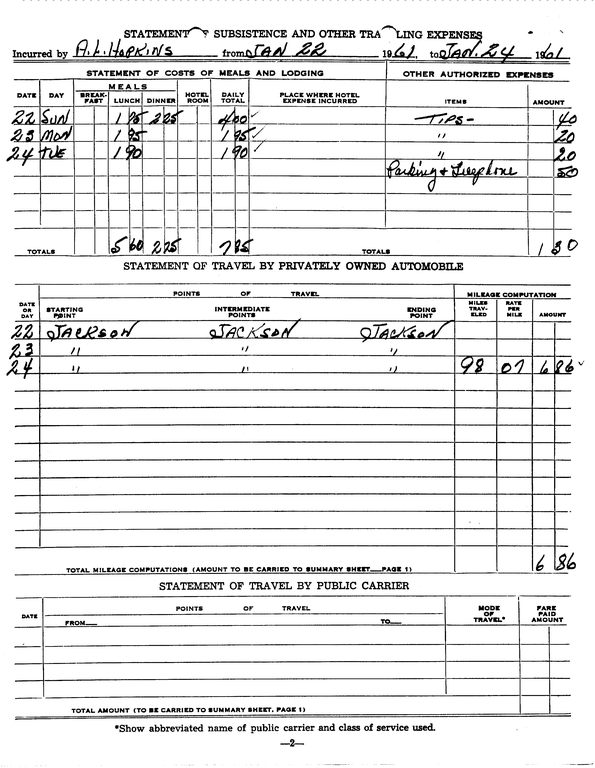 STATEMENT OF SUBSISTENCE AND OTHER TRA LING EXPENSES
Incurred by A. L. HOPKINS from JAN 22 1961, to JAN. 24 1961
STATEMENT OF COSTS OF MEALS AND LODGING OTHER AUTHORIZED EXPENSES
DATE DAY MEALS BREAK-FAST LUNCH DINNER HOTEL ROOM DAILY TOTAL PLACE WHERE HOTEL EXPENSE INCURRED ITEMS AMOUNT
22 SUN 1 75 2 25 4 00 TIPS- 40
23 MON 1 95 1 95 " 20
24 TUE 1 90 1 90 " 20
Parking & Telephone 50
TOTALS 5 60 2 25 7 85 TOTALS 1 30
STATEMENT OF TRAVEL BY PRIVATELY OWNED AUTOMOBILE
DATE OR DAY POINTS OF TRAVEL MILEAGE COMPUTATION
STARTING POINT INTERMEDIATE POINTS ENDING POINT MILES TRAV-ELED RATE PER MILE AMOUNT
22 JACKSON JACKSON JACKSON
23 " " "
24 " " " 98 07 6 86
TOTAL MILEAGE COMPUTATIONS (AMOUNT TO BE CARRIED TO SUMMARY SHEET—PAGE 1) 6 86
STATEMENT OF TRAVEL BY PUBLIC CARRIER
DATE POINTS OF TRAVEL MODE OF TRAVEL* FARE PAID AMOUNT
FROM— TO—
TOTAL AMOUNT (TO BE CARRIED TO SUMMARY SHEET, PAGE 1)
*Show abbreviated name of public carrier and class of service used.
—2—